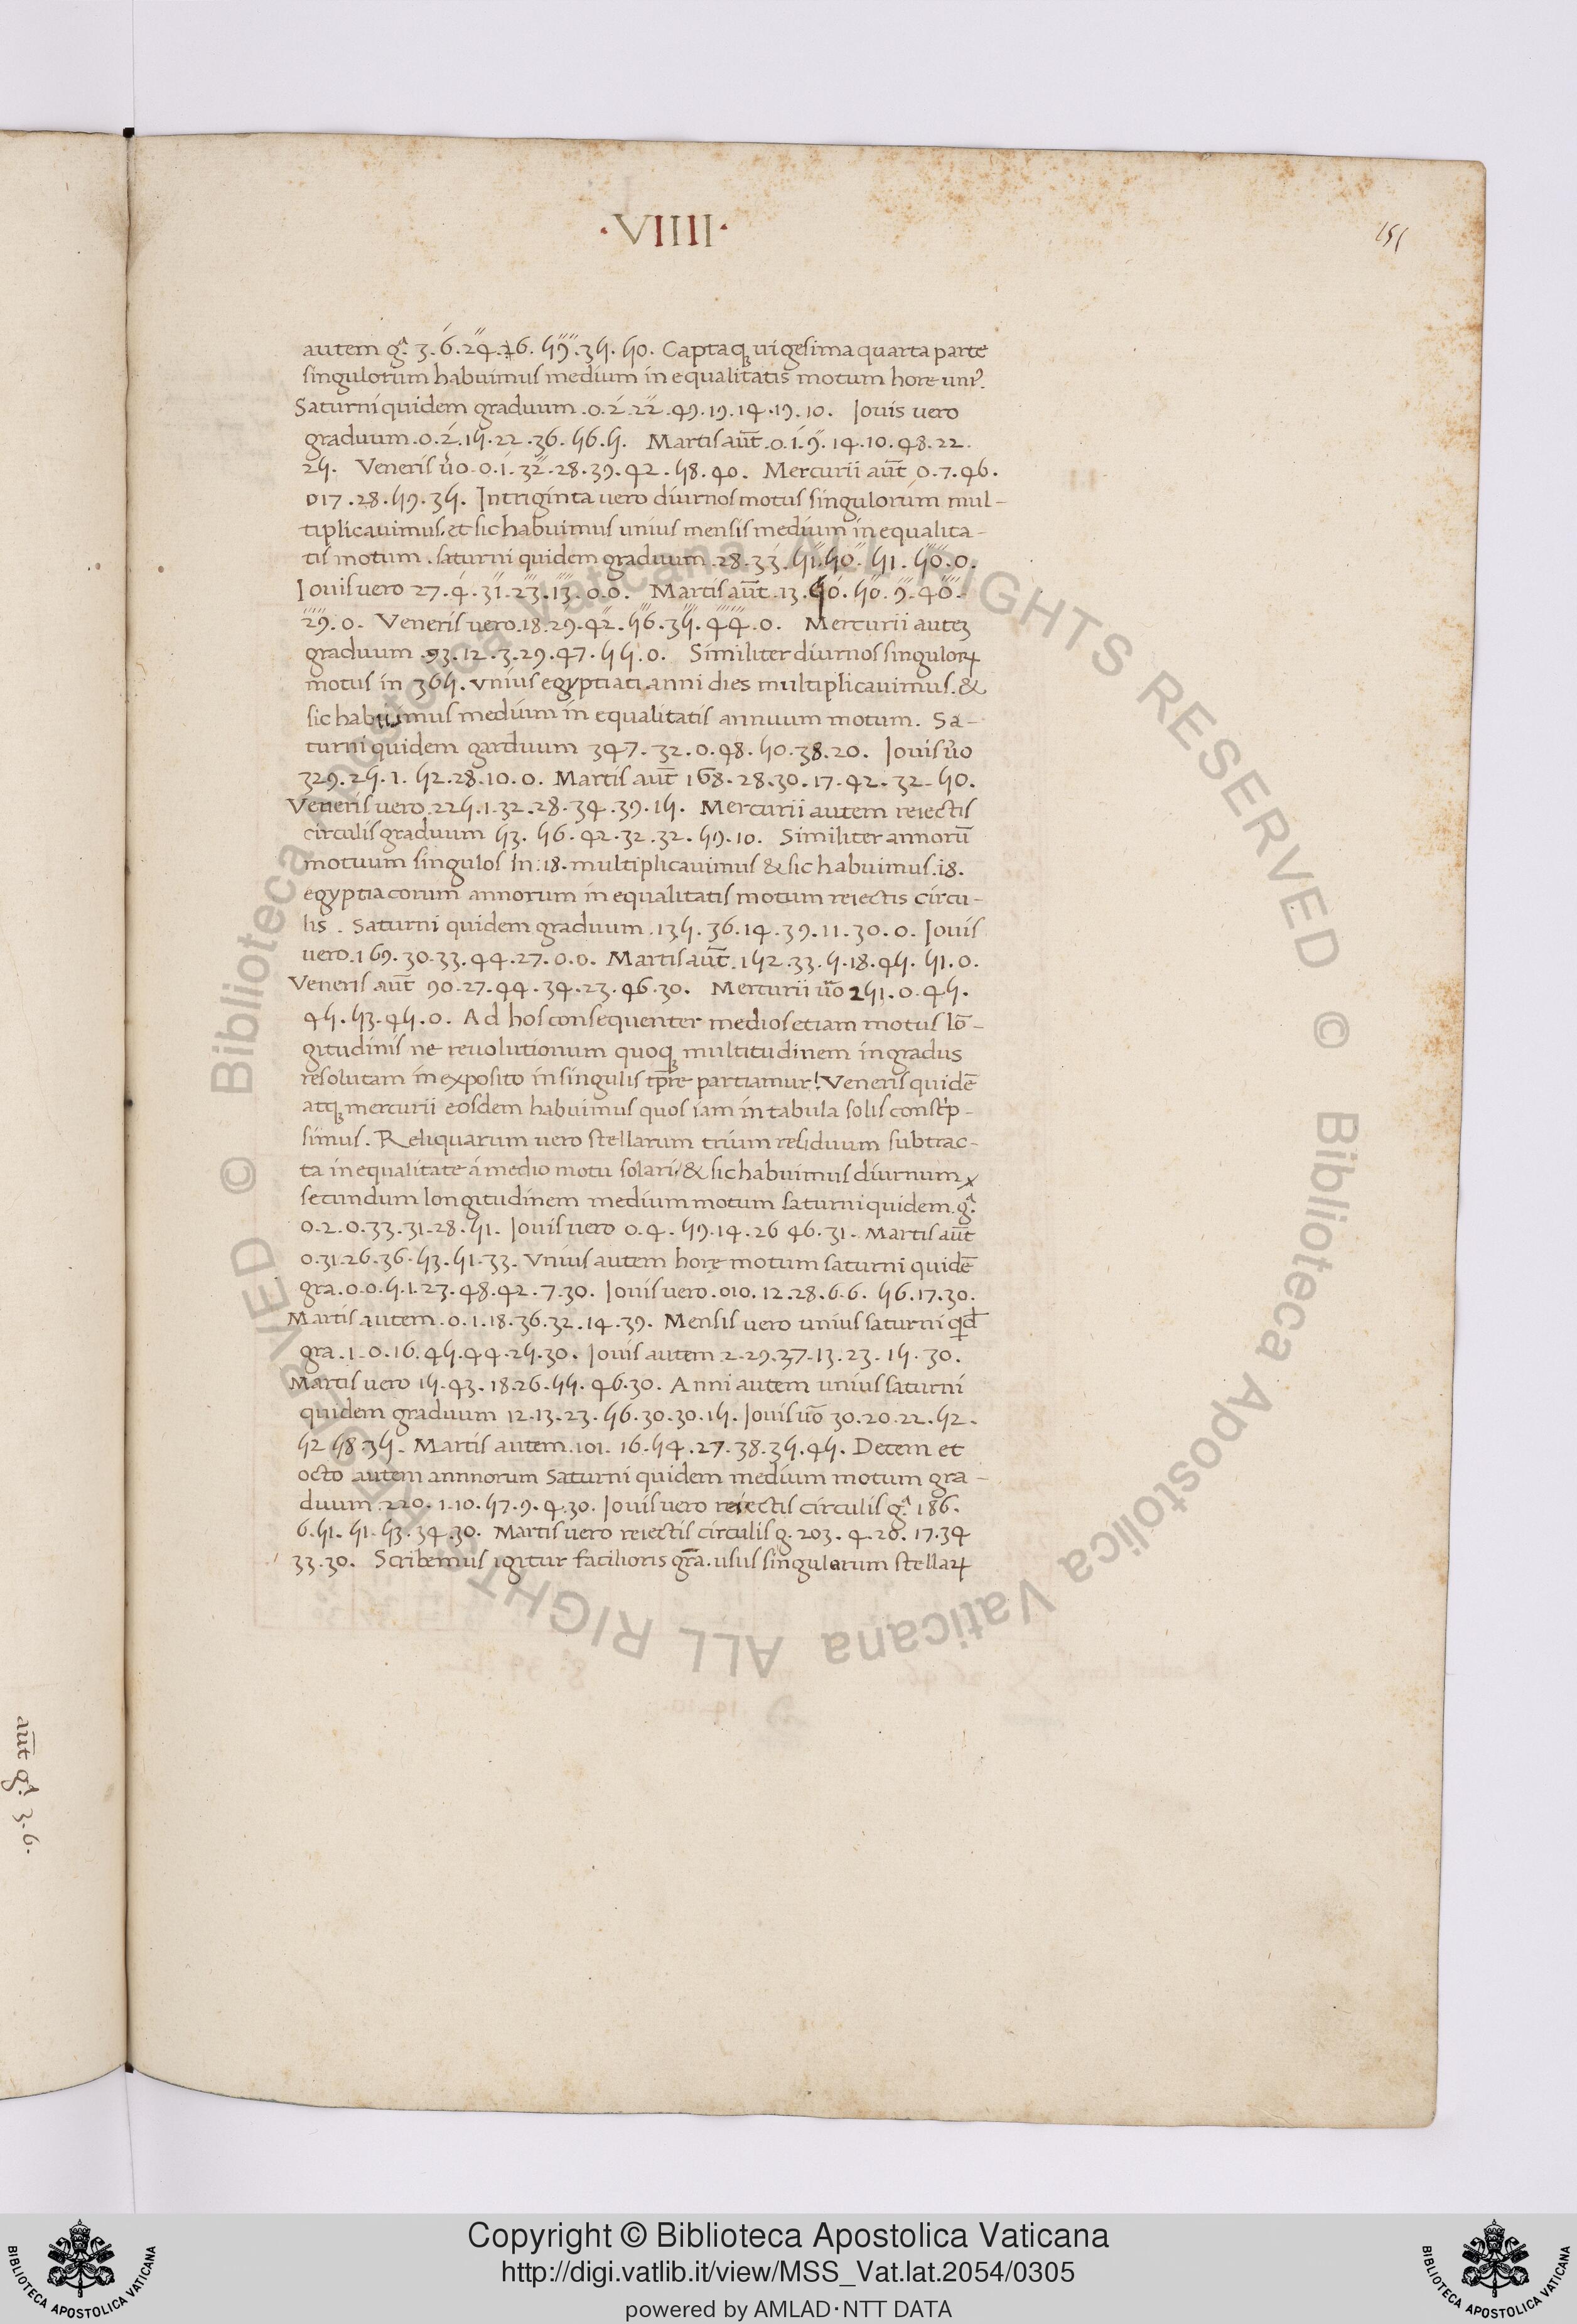 ·VIIII·
151
autem gͣ. 3. 6́. 24̋. 26. 59. 35. 50. Captaqꝫ uigesima quarta parte
singulorum habuimus medium inequalitatis motum hore uniꝰ.
Saturni quidem graduum .0.2́.22̋.49.19.14.19.10. Iouis vero
graduum .0.2́.15.22.36.56.5. Martis aut̄ .0.1́.9̋.14.10.48.22.
25. Veneris v̄o .0.1́.32̋.28.39.42.58.40. Mercurii aut̄ 0.7.46.
017.28.59.35. In triginta vero diurnos motus singulorum mul-
tiplicauimus. et sic habuimus unius mensis medium inequalita-
tis motum. saturni quidem graduum .28.33́.51̋.50.51.50.0.
Iouis vero 27.4́.31̋.23.13.0.0. Martis aut̄ .13.50.50.9.40.
29.0. Veneris vero .18.29.42̋.56.35.44.0. Mercurii auteꝫ
graduum .93.12.3.29.47.55.0. Similiter diurnos singuloꝝ
motus in 365. vnius egyptiati anni dies multiplicauimus. &
sic habuimus medium inequalitatis annuum motum. Sa-
turni quidem garduum 347.32.0.48.50.38.20. Iouis v̄o
329.25.1.52.28.10.0. Martis aut̄ 168.28.30.17.42.32.50.
Veneris vero .225.1.32.28.34.39.15. Mercurii autem reiectis
circulis graduum 53.56.42.32.32.59.10. Similiter annorū
motuum singulos in .18. multiplicauimus & sic habuimus .18.
egyptiacorum annorum inequalitatis motum reiectis circu-
lis. Saturni quidem graduum .135.36.14.39.11.30.0. Iouis
vero .169.30.33.44.27.0.0. Martis aut̄ .152.33.5.18.45.51.0.
Veneris aut̄ 90.27.44.34.23.46.30. Mercurii v̄o 251.0.45.
45.53.45.0. Ad hos consequenter medios etiam motus lō-
gitudinis ne reuolutionum quoqꝫ multitudinem in gradus
resolutam in exposito in singulis tp̄re partiamur! Veneris quidē
atqꝫ mercurii eosdem habuimus quos iam in tabula solis constͥp-
simus. Reliquarum vero stellarum trium residuum subtrac-
ta inequalitate á medio motu solari / & sic habuimus diurnum
secundum longitudinem medium motum saturni quidem .gͣ.
0.2.0.33.31.28.51. Iouis vero 0.4.59.14.26 46.31. Martis aut̄
0.31.26.36.53.51.33. Vnius autem horę motum saturni quidē
gra .0.0.5.1.23.48.42.7.30. Iouis vero .010.12.28.6.6.56.17.30.
Martis autem .0.1.18.36.32.14.39. Mensis vero unius saturni qͥd̄
gra .1.0.16.45.44.25.30. Iouis autem 2.29.37.13.23.15.30.
Martis vero 15.43.18.26.55.46.30. Anni autem unius saturni
quidem graduum 12.13.23.56.30.30.15. Iouis v̄o 30.20.22.52.
52 58.35. Martis autem .101.16.54.27.38.35.45. Decem et
octo autem annnorum Saturni quidem medium motum gra-
duum .220.1.10.57.9.4.30. Iouis vero reiectis circulis gͣ. 186.
6.51.51.53.34.30. Martis vero reiectis circulis g. 203.4.20.17.34
33.30. Scribemus igitur facilioris grā. usus singularum stellaꝝ
aut̄ gͣ. 3.6.
© Biblioteca Apostolica Vaticana ALL RIGHTS RESERVED © Biblioteca Apostolica Vaticana ALL RIGHTS RESERVED
Copyright © Biblioteca Apostolica Vaticana
http://digi.vatlib.it/view/MSS_Vat.lat.2054/0305
powered by AMLAD·NTT DATA
BIBLIOTECA APOSTOLICA VATICANA
BIBLIOTECA APOSTOLICA VATICANA